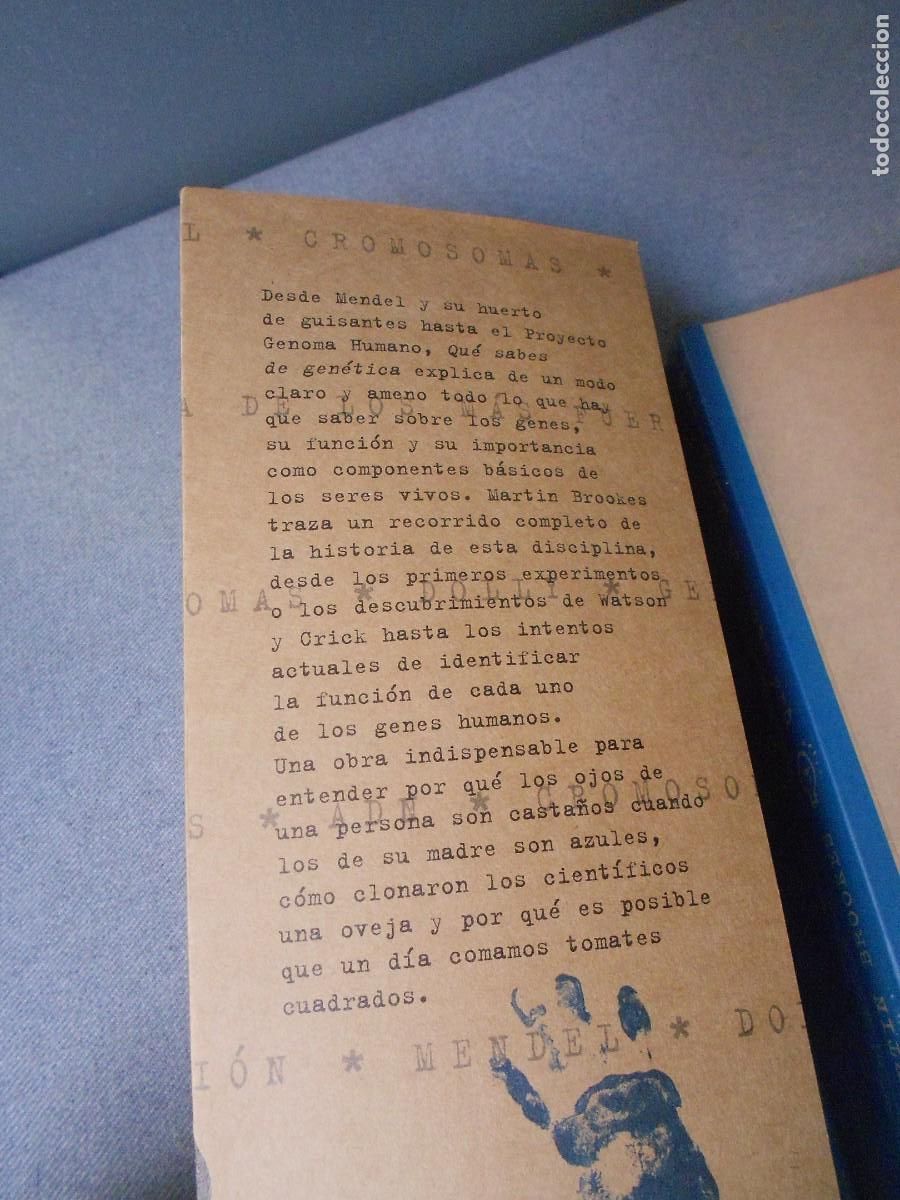 todocoleccion
L * CROMOSOMAS *
Desde Mendel y su huerto
de guisantes hasta el Proyecto
Genoma Humano, Qué sabes
de genética explica de un modo
claro y ameno todo lo que hay
A DE LOS MÁS FUER
que saber sobre los genes,
su función y su importancia
como componentes básicos de
los seres vivos. Martin Brookes
traza un recorrido completo de
la historia de esta disciplina,
desde los primeros experimentos
OMAS * DOLLY * GE
o los descubrimientos de Watson
y Crick hasta los intentos
actuales de identificar
la función de cada uno
de los genes humanos.
Una obra indispensable para
entender por qué los ojos de
S * ADN * CROMOSO
una persona son castaños cuando
los de su madre son azules,
cómo clonaron los científicos
una oveja y por qué es posible
que un día comamos tomates
cuadrados.
IÓN * MENDEL * DO
BROOKES